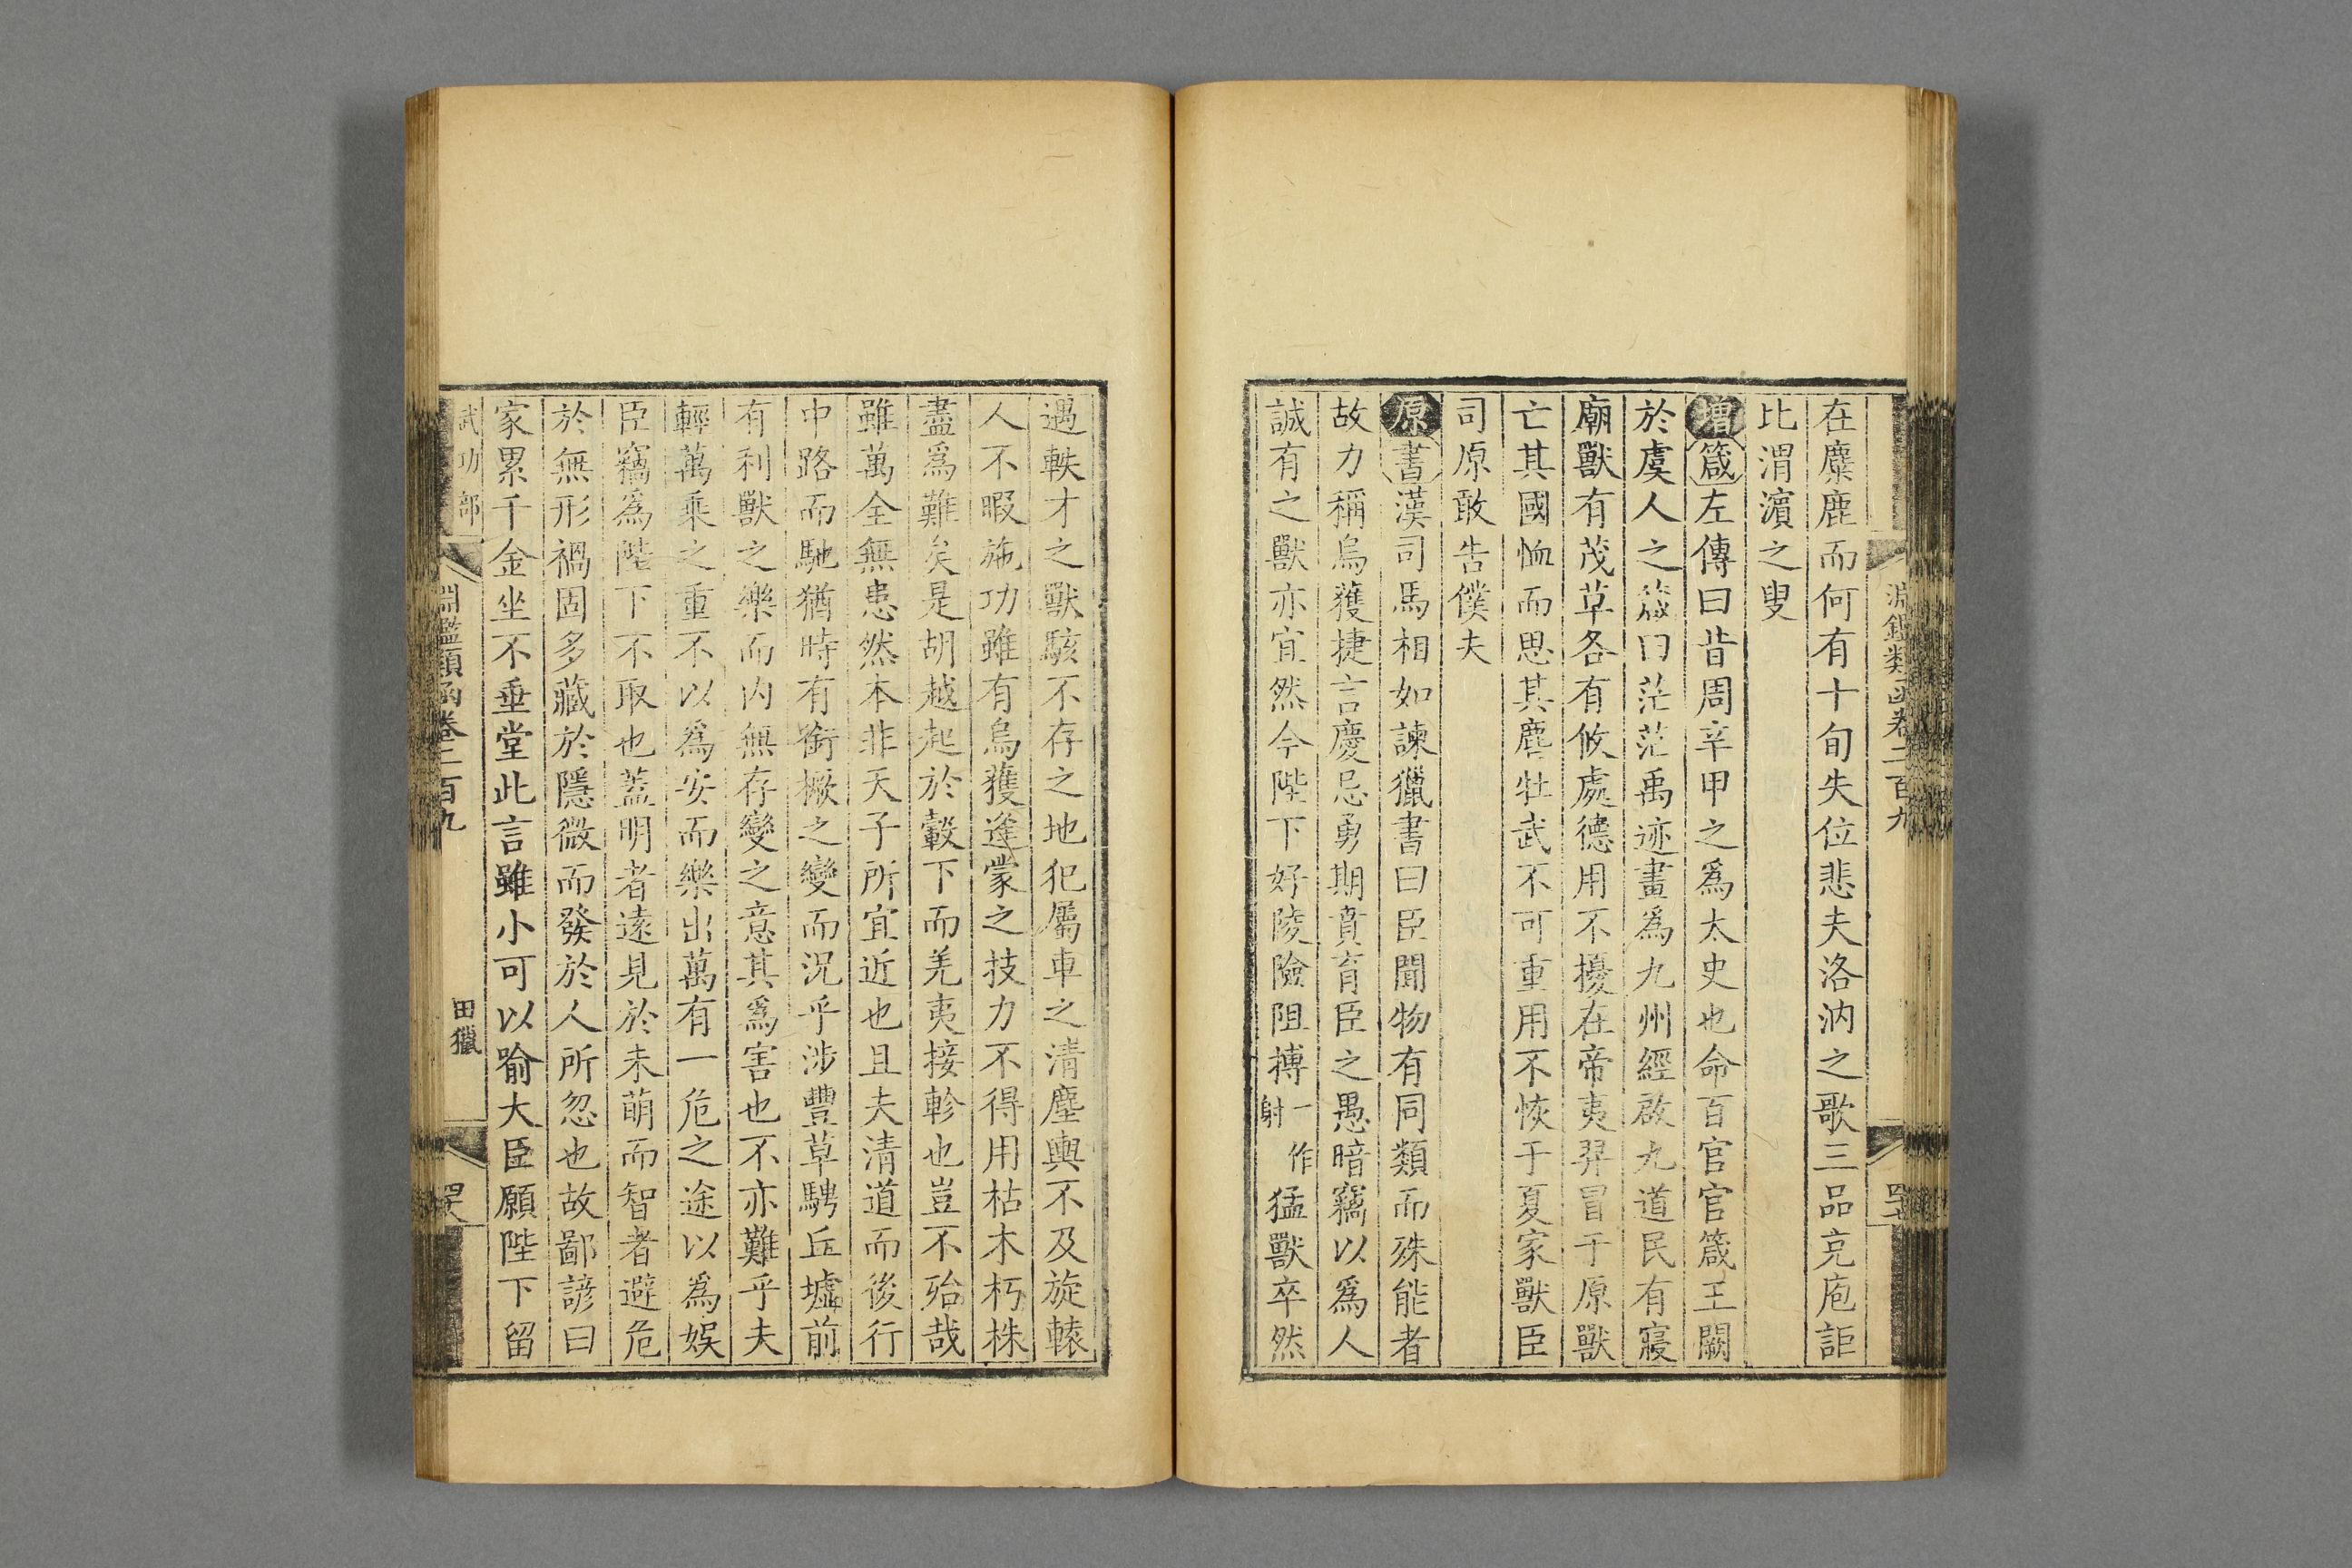 淵鑑類函卷二百九
在麋鹿而何有十旬失位悲夫洛汭之歌三品克庖詎
比渭濱之叟
增箴左傳曰昔周辛甲之爲太史也命百官官箴王闕
於虞人之箴曰茫茫禹迹畫爲九州經啟九道民有寢
廟獸有茂草各有攸處德用不擾在帝夷羿冒于原獸
亡其國恤而思其麀牡武不可重用不恢于夏家獸臣
司原敢告僕夫
原書漢司馬相如諫獵書曰臣聞物有同類而殊能者
故力稱烏獲捷言慶忌勇期賁育臣之愚暗竊以爲人
誠有之獸亦宜然今陛下好陵險阻搏一作射猛獸卒然
遇軼才之獸駭不存之地犯屬車之清塵輿不及旋轅
人不暇施功雖有烏獲逢蒙之技力不得用枯木朽株
盡爲難矣是胡越起於轂下而羌夷接軫也豈不殆哉
雖萬全無患然本非天子所宜近也且夫清道而後行
中路而馳猶時有銜橛之變而況乎涉豐草騁丘墟前
有利獸之樂而內無存變之意其爲害也不亦難乎夫
輕萬乘之重不以爲安而樂出萬有一危之途以爲娛
臣竊爲陛下不取也蓋明者遠見於未萌而智者避危
於無形禍固多藏於隱微而發於人所忽也故鄙諺曰
家累千金坐不垂堂此言雖小可以喻大臣願陛下留
武功部
淵鑑類函卷二百九
田獵